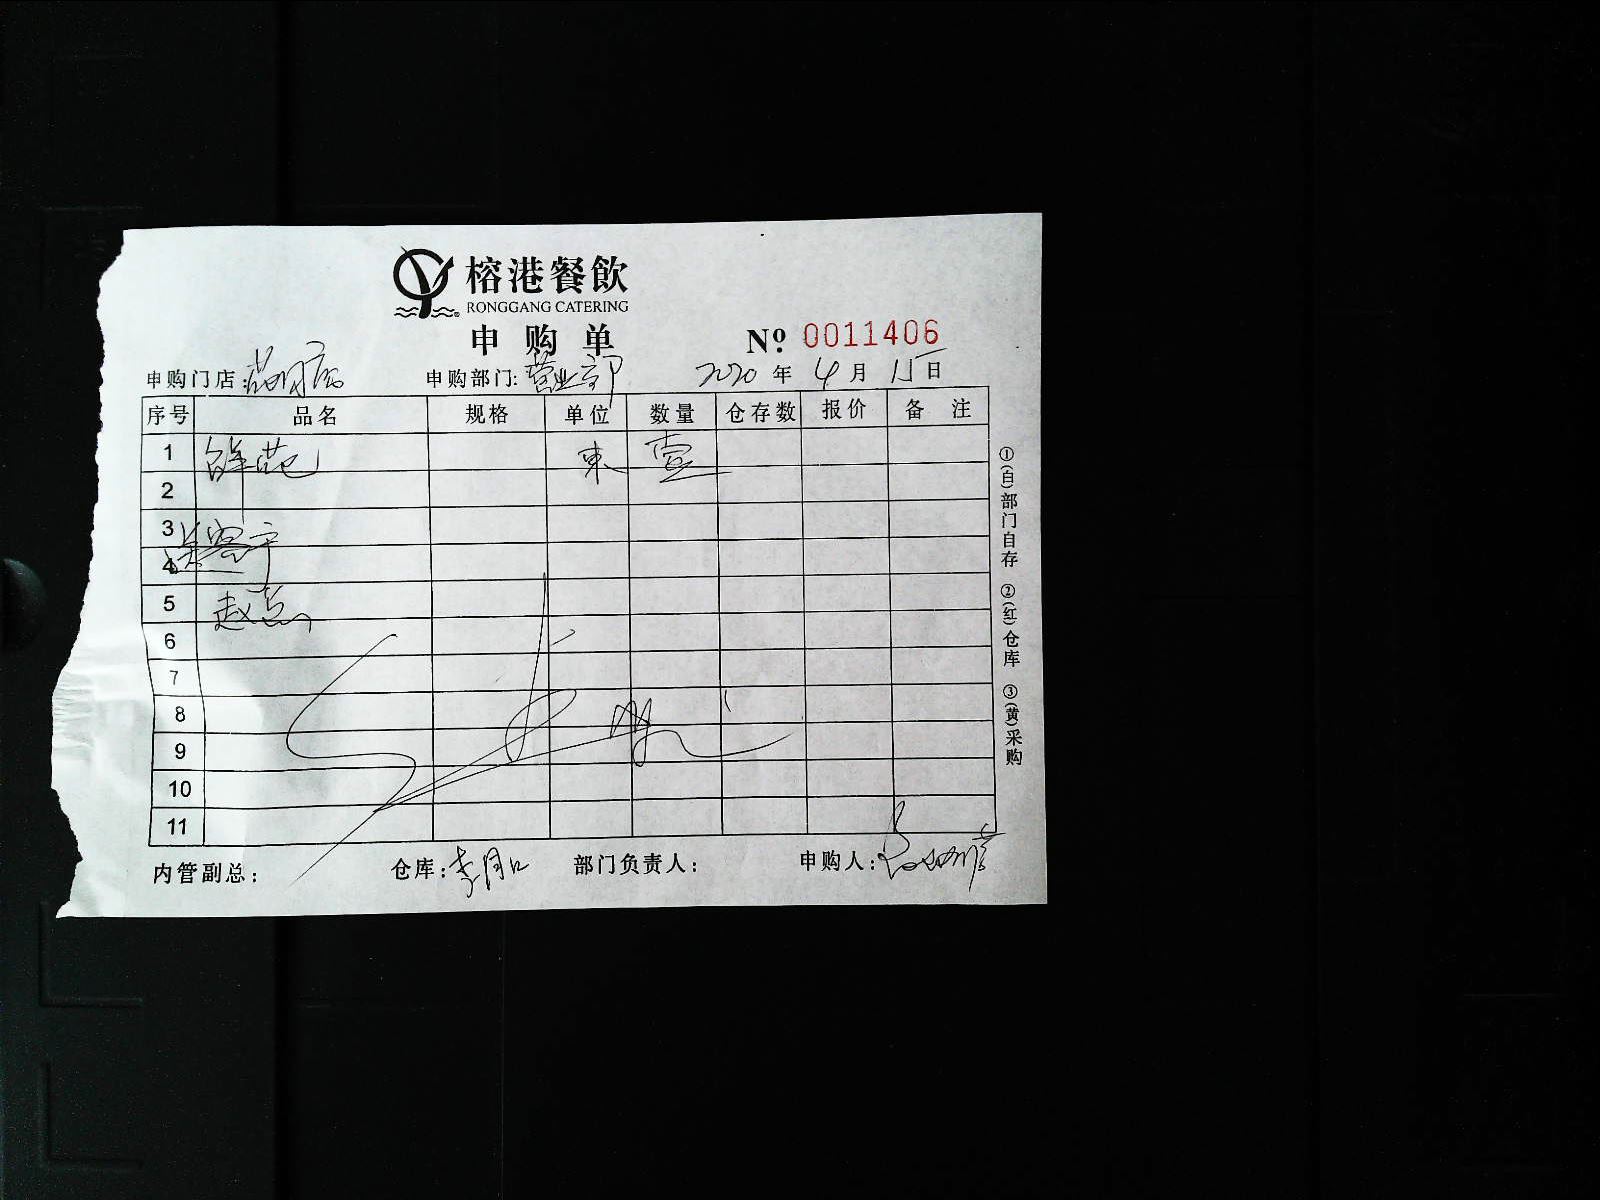 榕港餐飲
RONGGANG CATERING
申购单
№ 0011406
申购门店: 申购部门:营业部 2020年4月15日
序号 品名 规格 单位 数量 仓存数 报价 备注
1 鲜花 束 壹
2
3
4
5
6
7
8
9
10
11
①(白)部门自存 ②(红)仓库 ③(黄)采购
内管副总: 仓库: 部门负责人: 申购人: